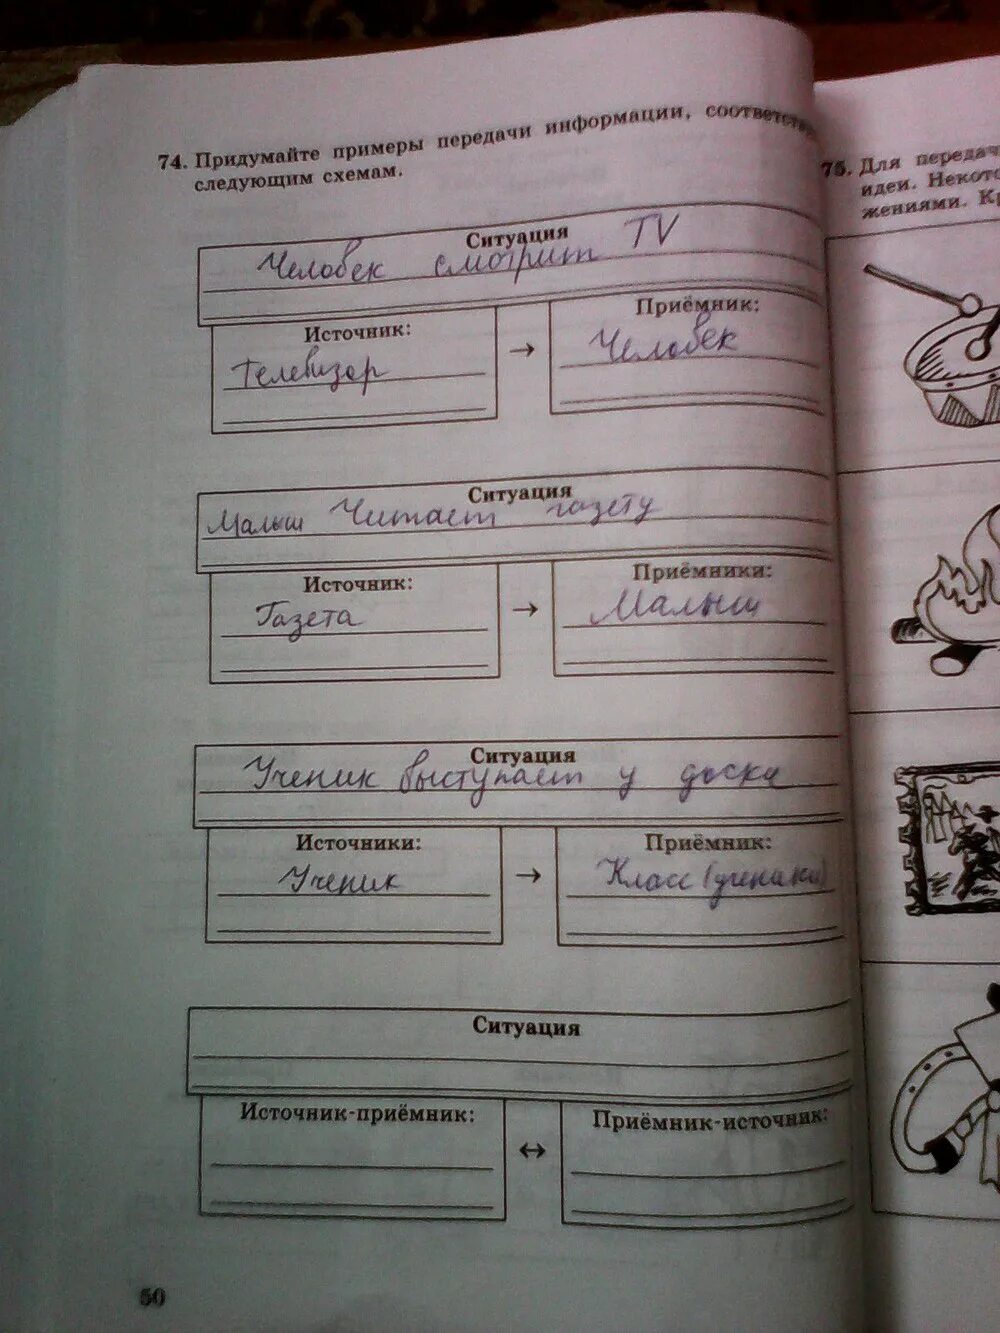 74. Придумайте примеры передачи информации,
следующим схемам.
Ситуация
Человек смотрит TV
Источник:
Телевизор
→
Приёмник:
Человек
Ситуация
Малыш Читает газету
Источник:
Газета
→
Приёмники:
Малыш
Ситуация
Ученик выступает у доски
Источники:
Ученик
→
Приёмник:
Класс (ученики)
Ситуация
Источник-приёмник:
↔
Приёмник-источник:
50
75. Для
идеи.
жениями.